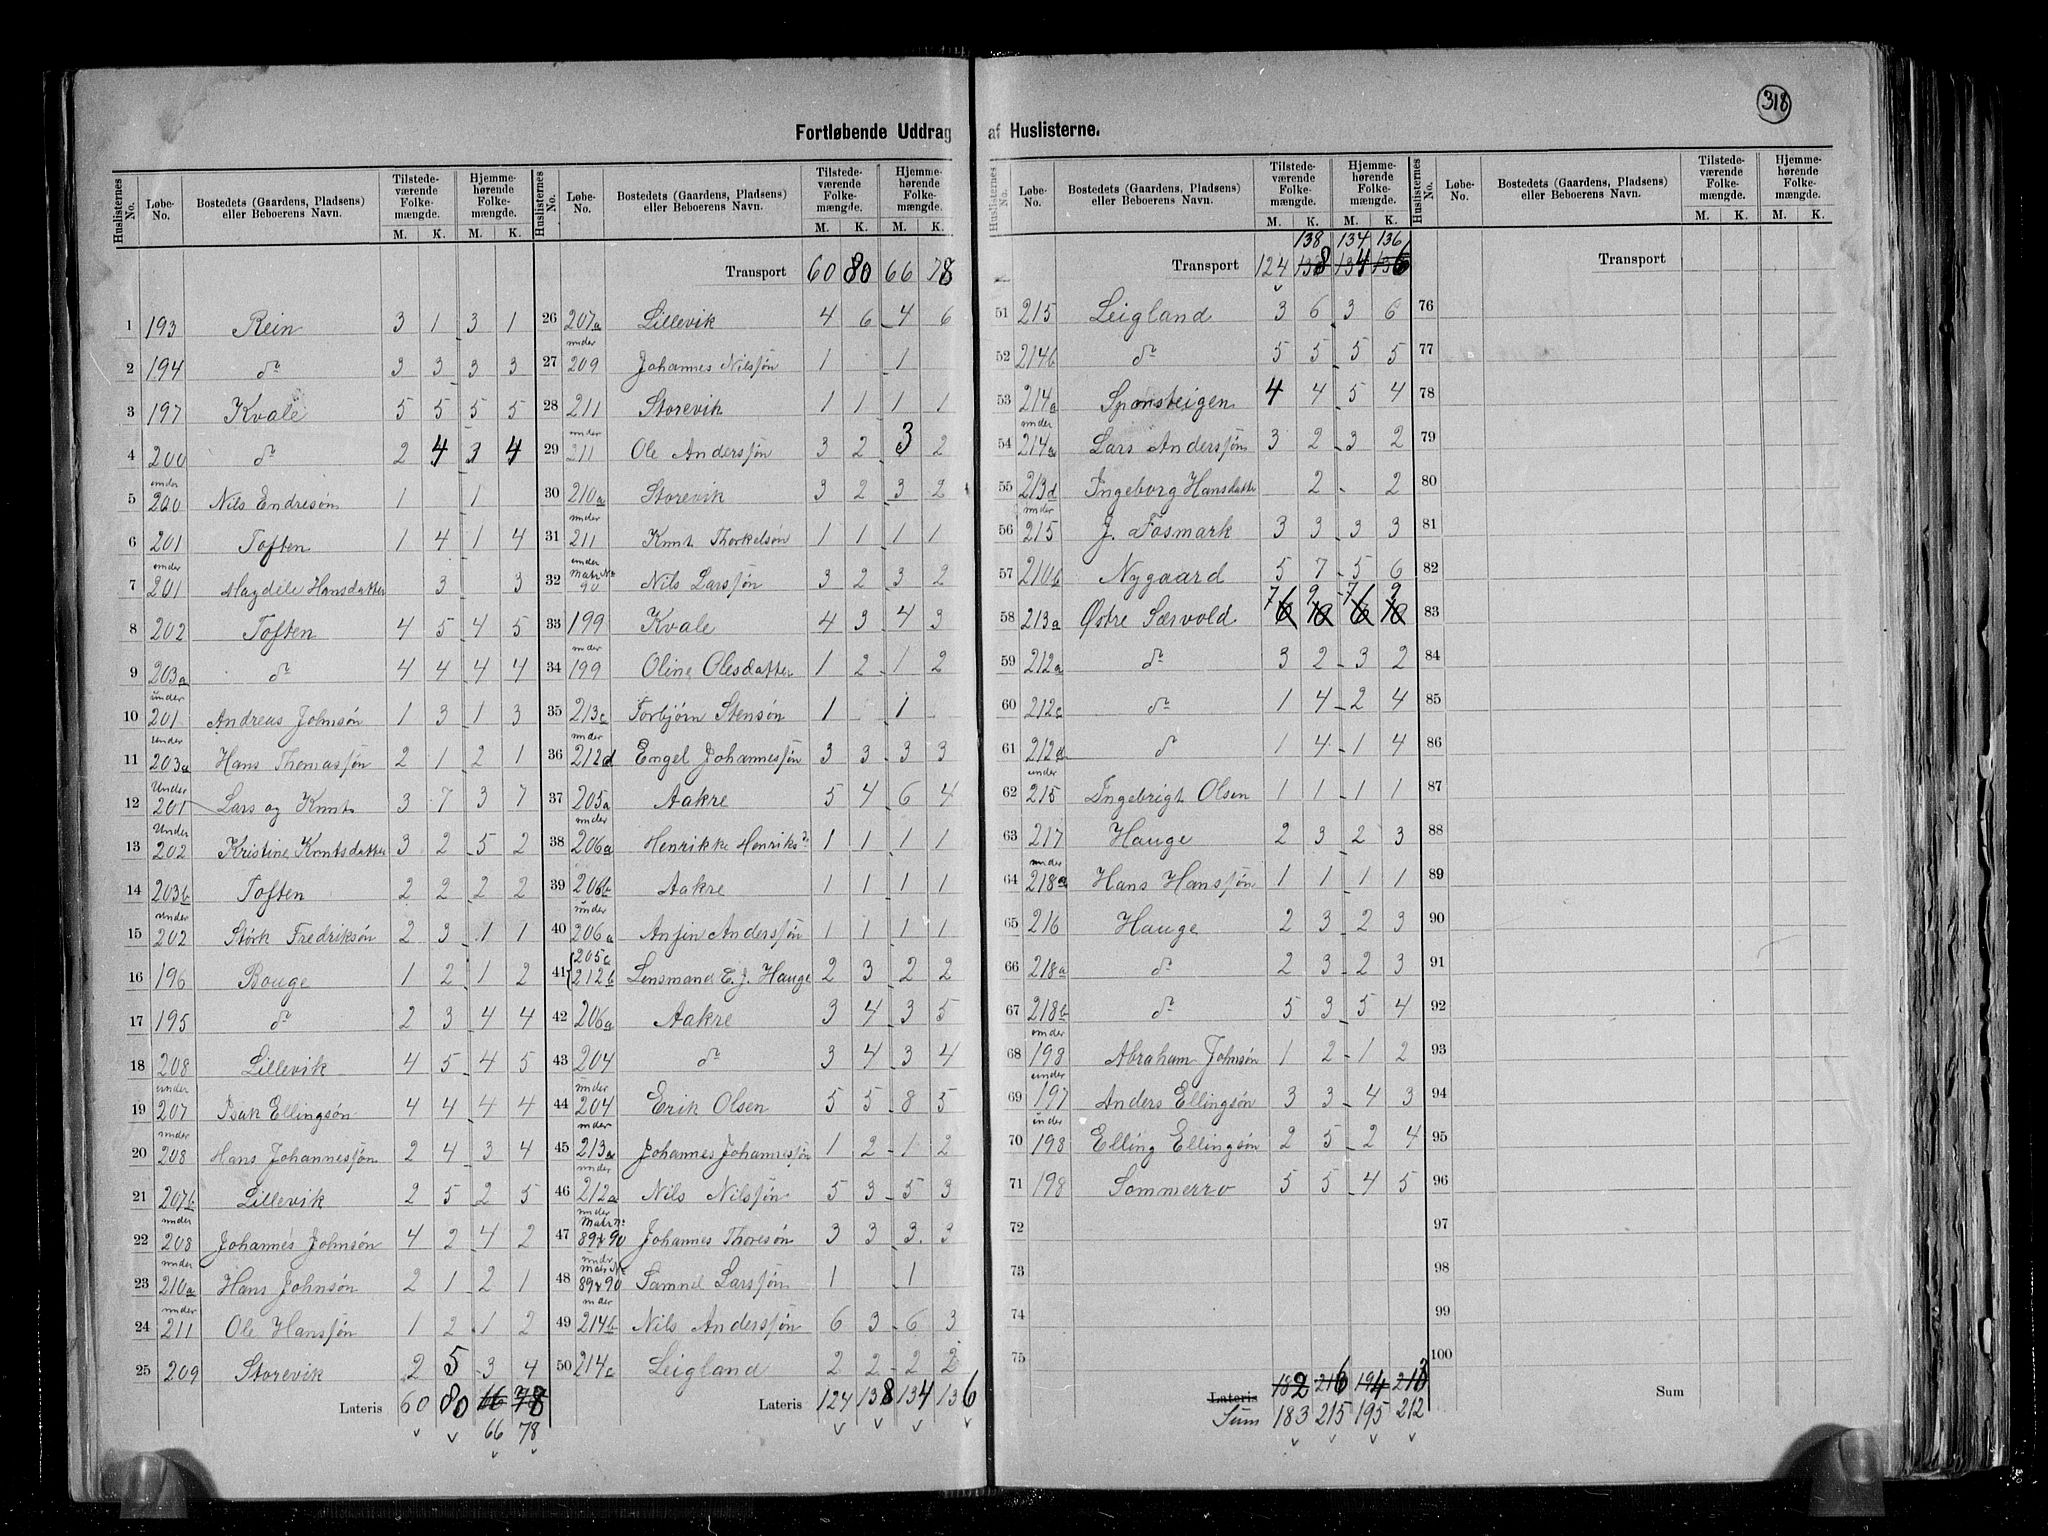 318
Fortløbende Uddrag af Huslisterne.
Huslisternes No. Løbe-No. Bostedets (Gaardens, Pladsens) eller Beboerens Navn. Tilstedeværende Folkemængde. Hjemmehørende Folkemængde.
M. K. M. K.
1 193 Rein 3 1 3 1
2 194 do 3 3 3 3
3 197 Kvale 5 5 5 5
4 200 do 2 4 3 4
5 under 200 Nils Endresøn 1 1
6 201 Toften 1 4 1 4
7 under 201 Magdele Hansdatter 3 3
8 202 Toften 4 5 4 5
9 203a do 4 4 4 4
10 under 201 Andreas Johnsøn 1 3 1 3
11 under 203a Hans Thomassøn 2 1 2 1
12 Under 201 Lars og Knut 3 7 3 7
13 Under 202 Kristine Knutsdatter 3 2 5 2
14 203b Toften 2 2 2 2
15 under 202 Størk Fredriksøn 2 3 1 1
16 196 Bouge 1 2 1 2
17 195 do 2 3 4 4
18 208 Lillevik 4 5 4 5
19 under 207 Isak Ellingsøn 4 4 4 4
20 under 208 Hans Johannessøn 2 4 3 4
21 207b Lillevik 2 5 2 5
22 under 208 Johannes Johnsøn 4 2 4 2
23 under 210a Hans Johnsøn 2 1 2 1
24 under 211 Ole Hanssøn 1 2 1 2
25 209 Storevik 2 5 3 4
Lateris 60 80 16 78
66 78
Huslisternes No. Løbe-No. Bostedets (Gaardens, Pladsens) eller Beboerens Navn. Tilstedeværende Folkemængde. Hjemmehørende Folkemængde.
M. K. M. K.
Transport 60 80 66 78
26 207a Lillevik 4 6 4 6
27 under 209 Johannes Nilssøn 1 1
28 211 Storevik 1 1 1 1
29 under 211 Ole Anderssøn 3 2 3 2
30 210a Storevik 3 2 3 2
31 under 211 Knut Thorkelsøn 1 1 1 1
32 under Matr No 90 Nils Larssøn 3 2 3 2
33 199 Kvale 4 3 4 3
34 under 199 Oline Olesdatter 1 2 1 2
35 213c Torbjørn Stensøn 1 1
36 under 212d Engel Johannessøn 3 3 3 3
37 205a Aakre 5 4 6 4
38 under 206a Henrikke Henriksdr 1 1 1 1
39 206b Aakre 1 1 1 1
40 under 206a Anfin Anderssøn 1 1 1 1
41 205c 212b Lensmand E. J. Hauge 2 3 2 2
42 206a Aakre 3 4 3 5
43 204 do 3 4 3 4
44 under 204 Erik Olsen 5 5 8 5
45 under 213a Johannes Johannessøn 1 2 1 2
46 under 212a Nils Nilssøn 5 3 5 3
47 under Matr No 89 & 90 Johannes Thoresøn 3 3 3 3
48 under Matr No 89 & 90 Samuel Larssøn 1 1
49 under 214b Nils Anderssøn 6 3 6 3
50 214c Leigland 2 2 2 2
Lateris 124 138 134 136
Huslisternes No. Løbe-No. Bostedets (Gaardens, Pladsens) eller Beboerens Navn. Tilstedeværende Folkemængde. Hjemmehørende Folkemængde.
M. K. M. K.
138 134 136
Transport 124 138 134 136
51 215 Leigland 3 6 3 6
52 214b do 5 5 5 5
53 214a Sponsteigen 4 4 5 4
54 under 214a Lars Anderssøn 3 2 3 2
55 213d Ingeborg Hansdatter 2 2
56 under 215 J. Fosmark 3 3 3 3
57 210b Nygaard 5 7 5 6
7 9 7 9
58 213a Østre Sævold 6 10 6 10
59 212a do 3 2 3 2
60 212c do 1 4 2 4
61 212d do 1 4 1 4
62 under 215 Ingebrigt Olsen 1 1 1 1
63 217 Hauge 2 3 2 3
64 under 218a Hans Hanssøn 1 1 1 1
65 216 Hauge 2 3 2 3
66 218a do 2 3 2 3
67 218b do 5 3 5 4
68 under 198 Abraham Johnsøn 1 2 1 2
69 under 197 Anders Ellingsøn 3 3 4 3
70 under 198 Elling Ellingsøn 2 5 2 4
71 198 Sommerro 5 5 4 5
72
73
74
75
Lateris 182 216 194 213
Sum 183 215 195 212
Huslisternes No. Løbe-No. Bostedets (Gaardens, Pladsens) eller Beboerens Navn. Tilstedeværende Folkemængde. Hjemmehørende Folkemængde.
M. K. M. K.
Transport
76
77
78
79
80
81
82
83
84
85
86
87
88
89
90
91
92
93
94
95
96
97
98
99
100
Sum